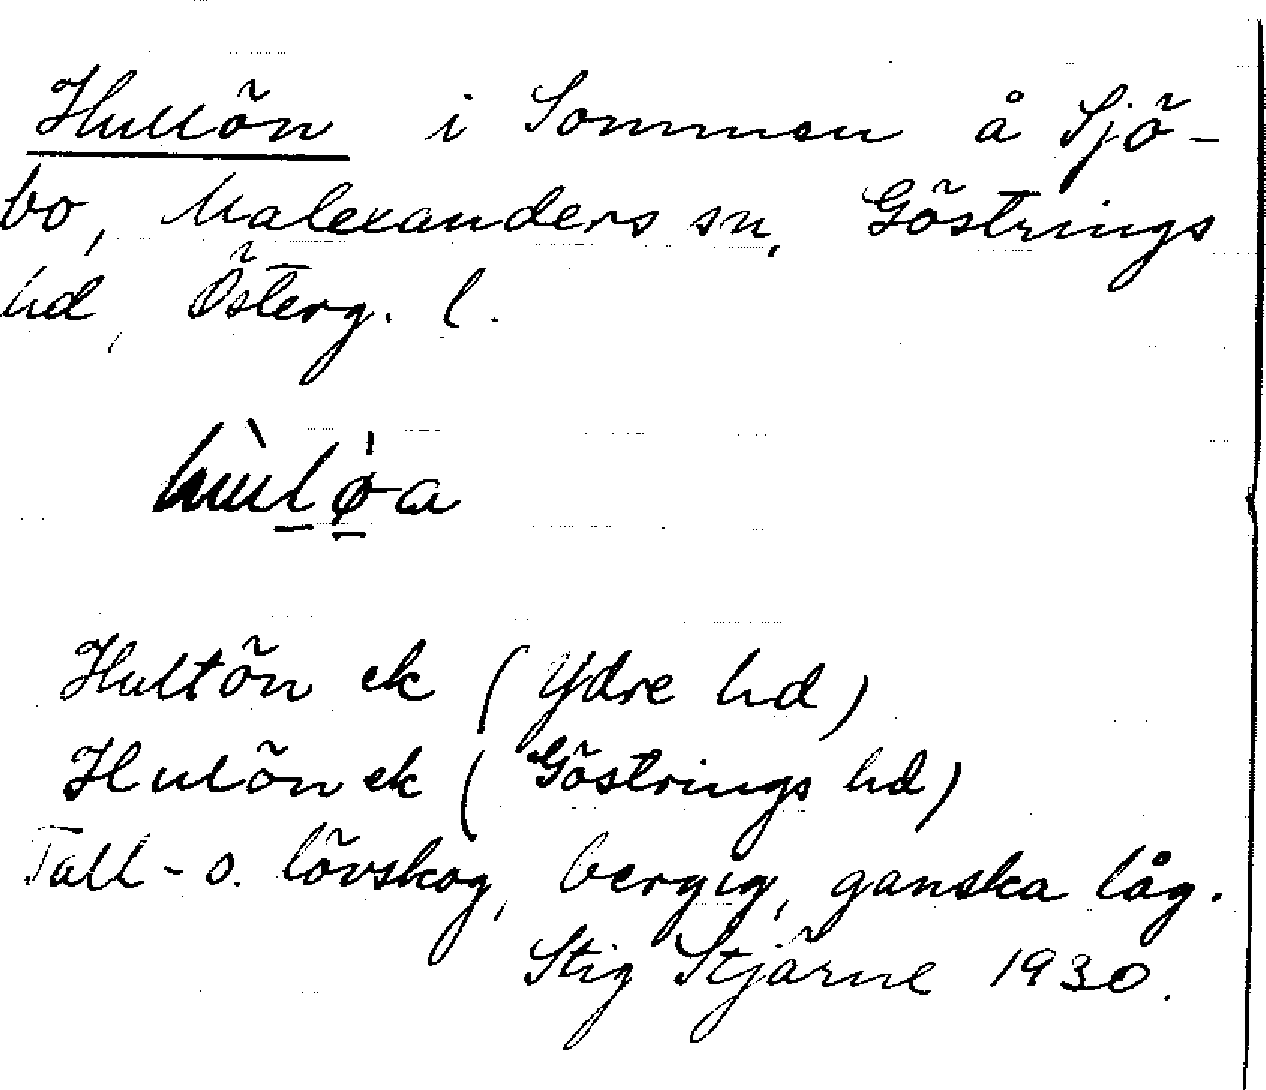 Hullön i Sommen å Sjö-
bo, Malexanders sn, Göstrings
hd, Österg. l.
Hultön ek (Ydre hd)
Hulön ek (Göstrings hd)
Tall- o. lövskog, bergig, ganska låg.
Stig Stjärne 1930.